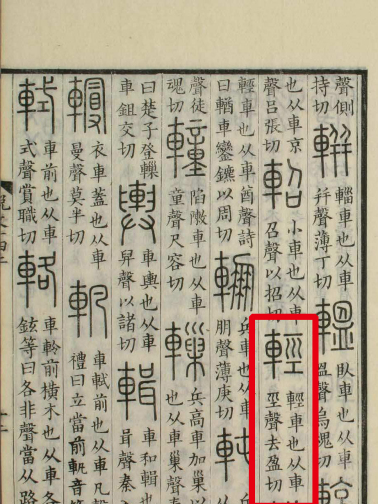 聲側
持切
輧
輜車也从車
幷聲薄丁切
輼
臥車也从車
𥁕聲烏魂切
也从車京
聲吕張切
軺
小車也从車
召聲以招切
輕
輕車也从車
巠聲去盈切
輕車也从車酋聲詩
曰輶車鑾鑣以周切
輣
兵車也从車
朋聲薄庚切
軘
兵
聲徒
魂切
䡴
陷敶車也从車
童聲尺容切
轈
兵高車加巢以
也从車巢聲春
曰楚子登轈
車鉏交切
輿
車輿也从車
舁聲以諸切
輯
車和輯也从
咠聲秦入
䡬
衣車蓋也从車
曼聲莫半切
軓
車軾前也从車凡聲
禮曰立當前軓音
軾
車前也从車
式聲賞職切
輅
車軨前橫木也从車各
鉉等曰各非聲當从路